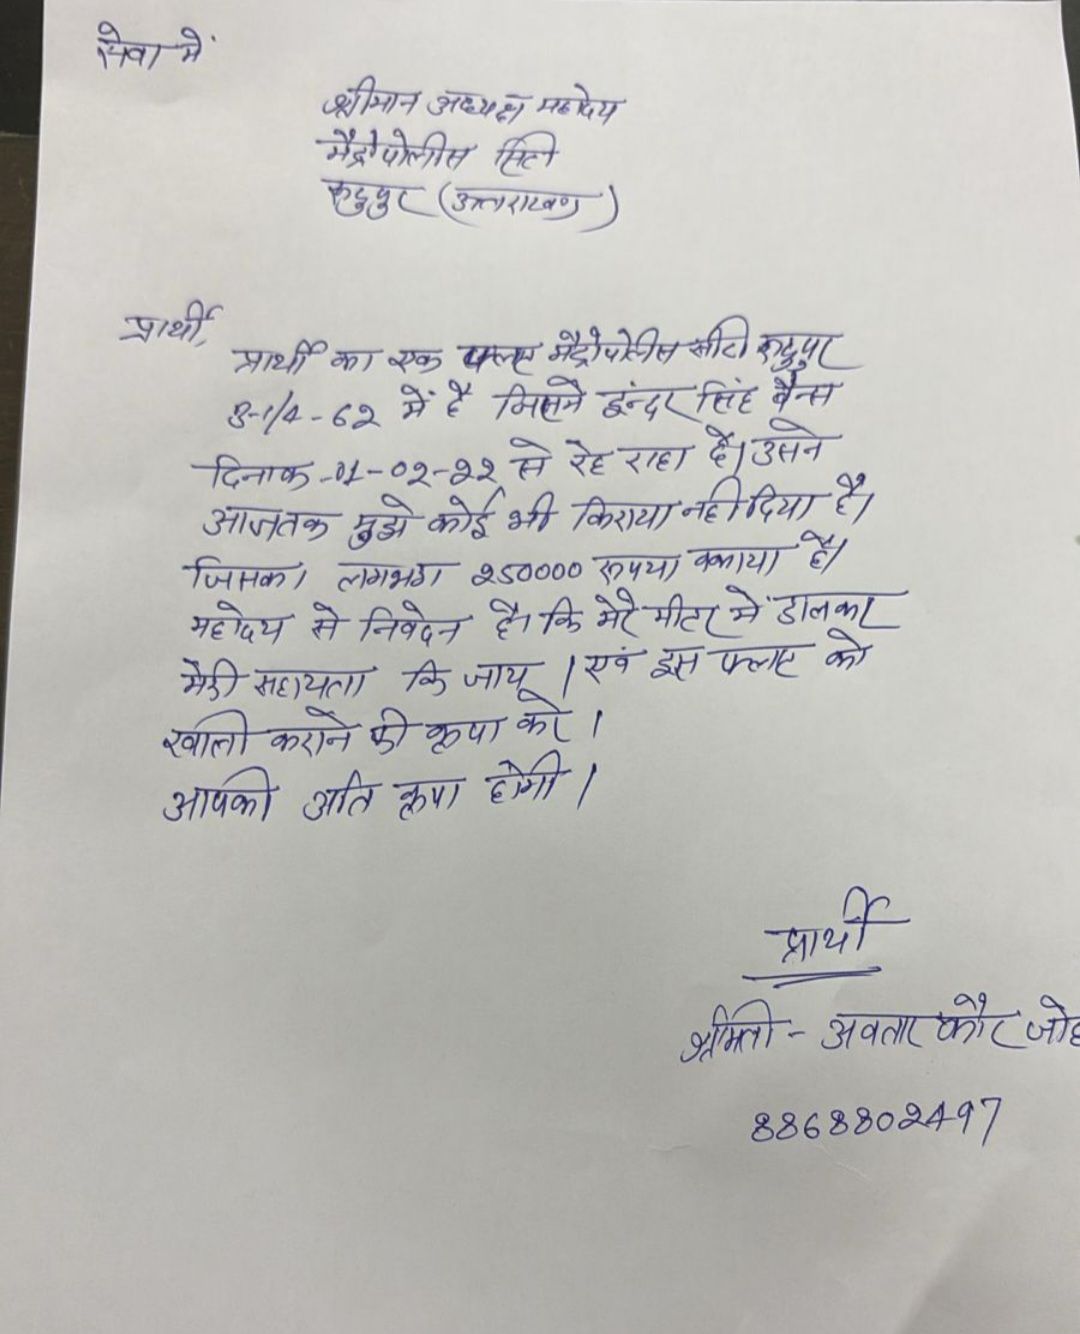 सेवा में
श्रीमान अध्यक्ष महोदय
मैट्रोपोलीस सिटी
रूद्रपुर (उत्तराखण्ड)
प्रार्थी,
प्रार्थी का एक फ्लैट मैट्रोपोलीस सीटी रूद्रपुर
B-1/4-62 में है जिसमे इन्दर सिंह बैन्स
दिनाक -01-02-22 से रेह राहा है। उसने
आजतक मुझे कोई भी किराया नही दिया है।
जिसका लगभग 250000 रूपया बकाया है।
महोदय से निवेदन है। कि मेरे मीटर में डालकर
मेरी सहायता कि जाय । एवं इस फ्लाट को
खाली कराने की कृपा करे ।
आपकी अति कृपा होगी ।
प्रार्थी
श्रीमती - अवतार कौर
8868802497